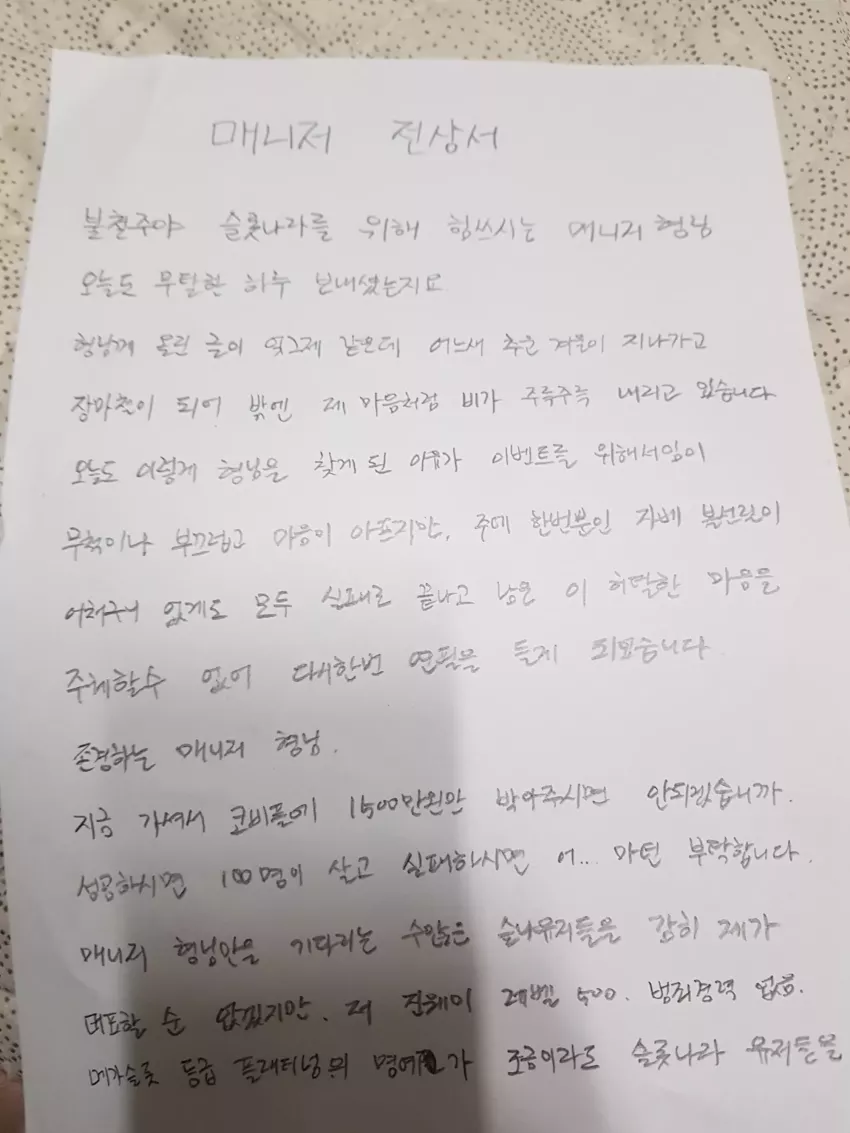 매니저 전상서
불철주야 슬롯나라를 위해 힘쓰시는 매니저 형님
오늘도 무탈한 하루 보내셨는지요
형님께 올린 글이 엊그제 같은데 어느새 추운 겨울이 지나가고
장마철이 되어 밖엔 제 마음처럼 비가 주륵주륵 내리고 있습니다
오늘도 이렇게 형님을 찾게 된 이유가 이벤트를 위해서임이
무척이나 부끄럽고 마음이 아프지만, 주에 한번뿐인 자베 본선릿이
어처구니 없게도 모두 실패로 끝나고 남은 이 허탈한 마음을
주체할수 없어 다시한번 연필을 들게 되었습니다
존경하는 매니저 형님.
지금 가셔서 코비폴에 1500만원만 박아주시면 안되겠습니까.
성공하시면 100명이 살고 실패하시면 어... 마틴 부탁합니다.
매니저 형님만을 기다리는 수많은 슬나유저들을 감히 제가
대표할 순 없겠지만. 저 진웨이 레벨 500. 범죄경력 없음.
메가슬롯 등급 플래티넘의 명예가 조금이라도 슬롯나라 유저들을